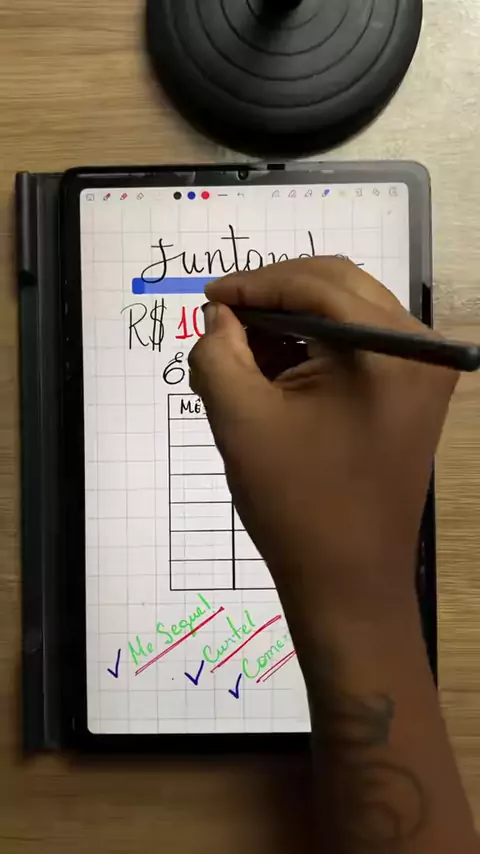 Juntando
R$ 10
E
MÊ
Me Segue!
Curte!
Come